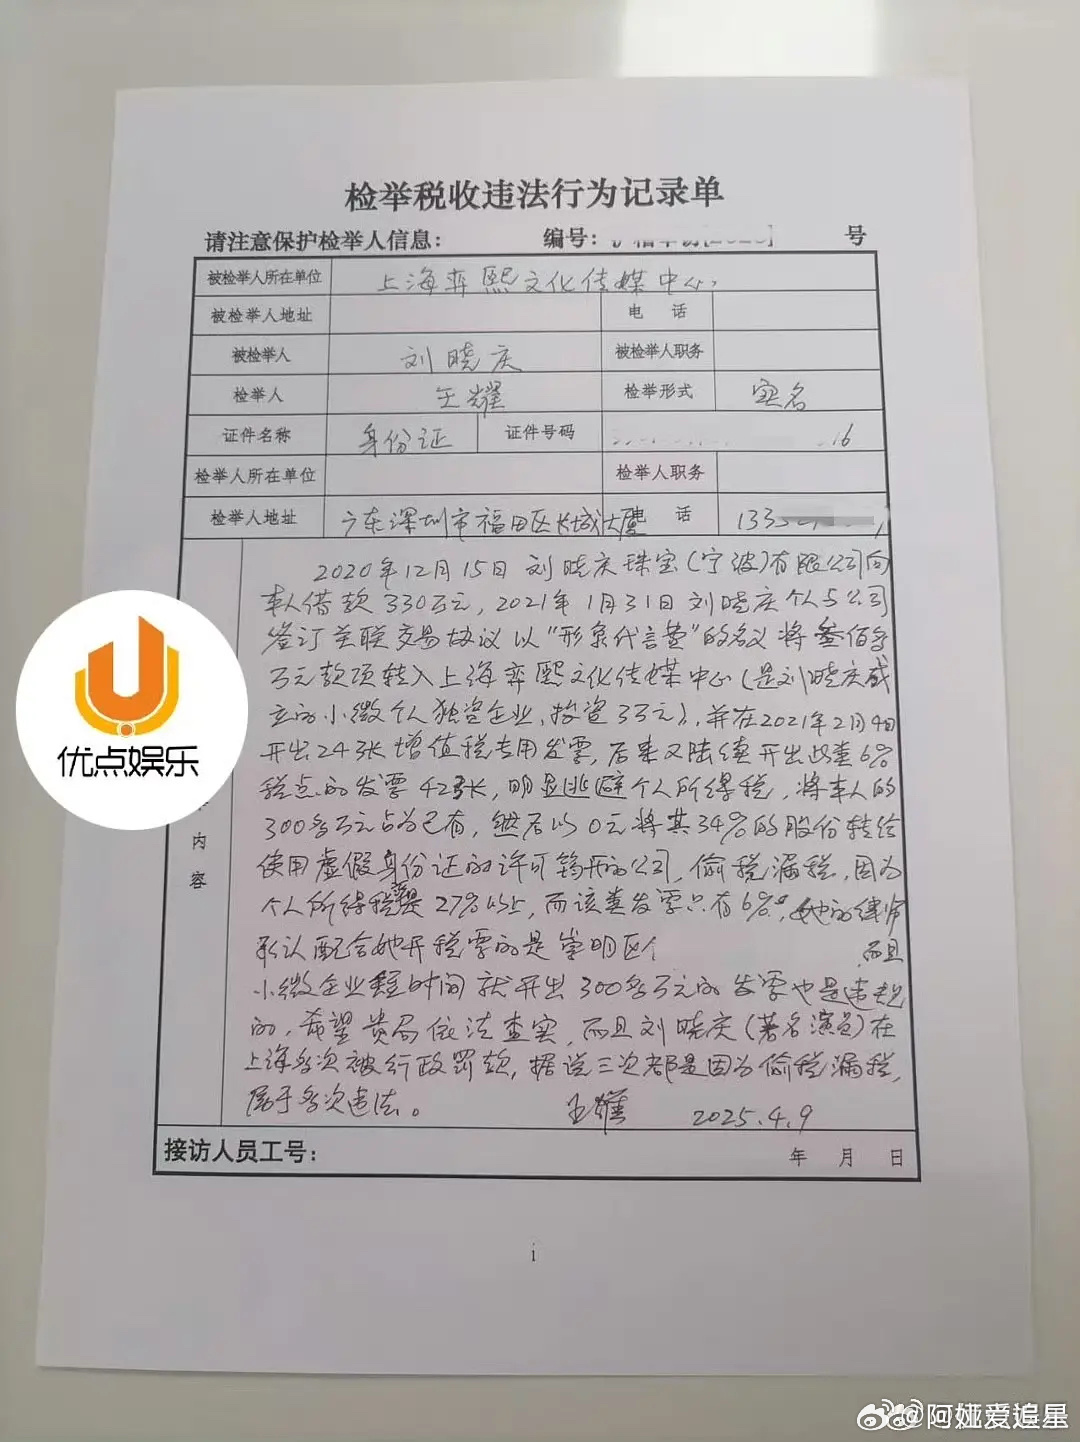 检举税收违法行为记录单
请注意保护检举人信息： 编号： 号
被检举人所在单位 上海弈熙文化传媒中心
被检举人地址 电 话
被检举人 刘晓庆 被检举人职务
检举人 王耀 检举形式 实名
证件名称 身份证 证件号码 16
检举人所在单位 检举人职务
检举人地址 广东深圳市福田区长城大厦 电 话 133
内容
2020年12月15日刘晓庆珠宝(宁波)有限公司向
本人借款330万元，2021年1月31日刘晓庆个人与公司
签订关联交易协议以“形象代言费”的名义将叁佰多
万元款项转入上海弈熙文化传媒中心(是刘晓庆成
立的小微个人独资企业，投资3万元)，并在2021年2月4日
开出24张增值税专用发票，后来又陆续开出此类6%
税点的发票42张，明显逃避个人所得税，将本人的
300多万元占为己有，然后以0元将其34%的股份转给
使用虚假身份证的许可筠开的公司，偷税漏税，因为
个人所得税是27%以上，而该类发票只有6%，她的律师
承认配合她开税票的是崇明区个 而且
小微企业短时间就开出300多万元的发票也是违规
的，希望贵局依法查实，而且刘晓庆(著名演员)在
上海多次被行政罚款，据说三次都是因为偷税漏税，
属于多次违法。 王耀 2025.4.9
接访人员工号： 年 月 日
i
优点娱乐
@阿娅爱追星